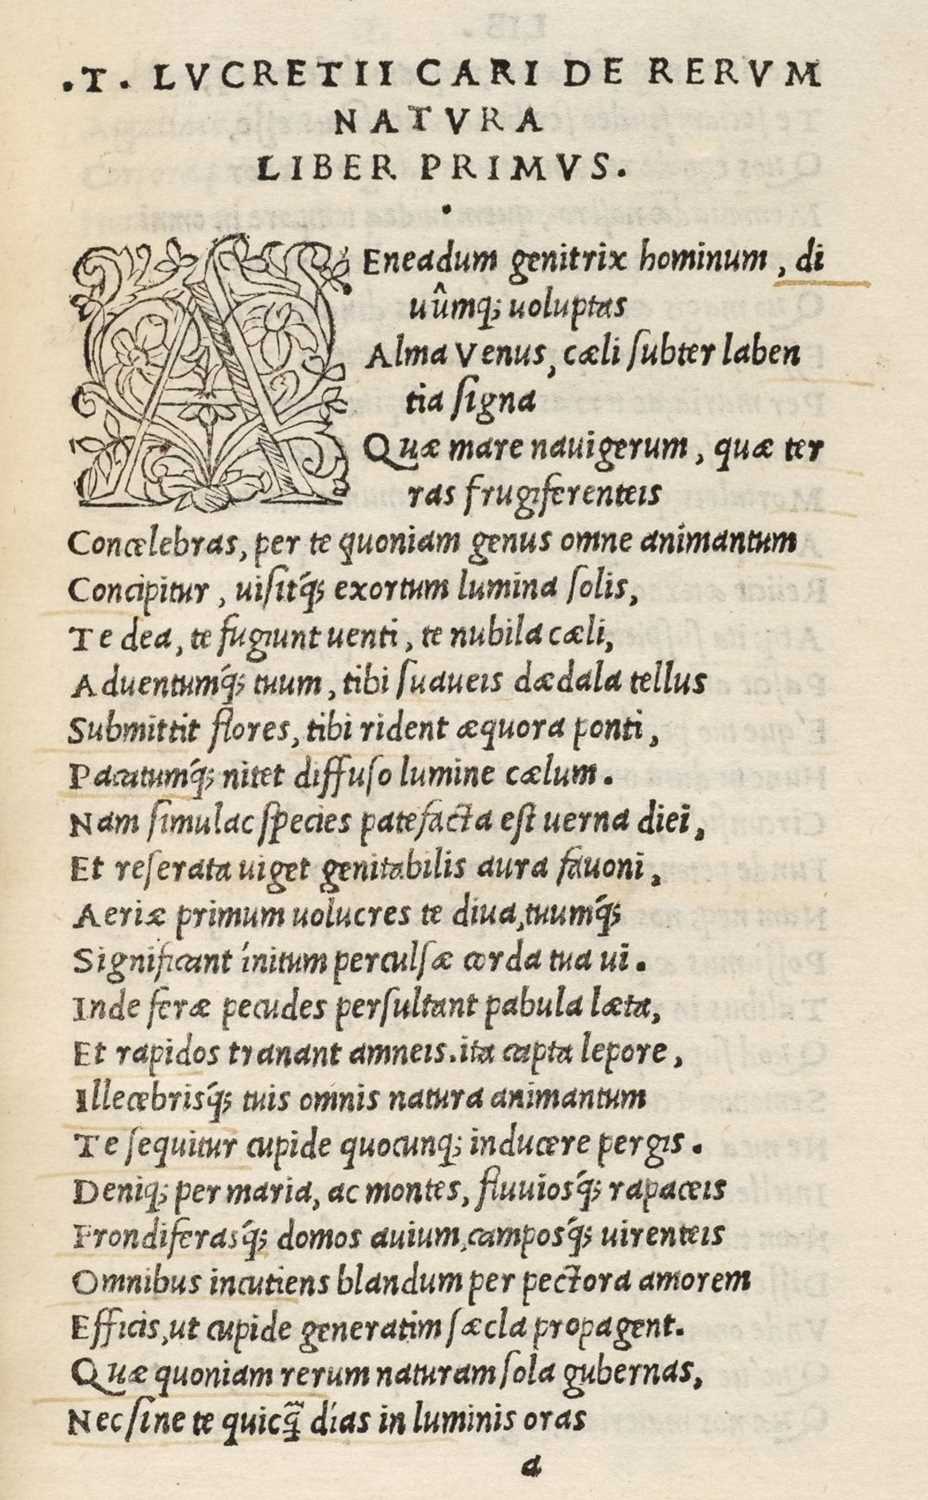 .T. LVCRETII CARI DE RERVM
NATVRA
LIBER PRIMVS.
AEneadum genitrix hominum, di
uûmq; uoluptas
Alma Venus, cæli subter laben
tia signa
Quæ mare navigerum, quæ ter
ras frugiferenteis
Concelebras, per te quoniam genus omne animantum
Concipitur, uisitq́; exortum lumina solis,
Te dea, te fugiunt uenti, te nubila cæli,
Aduentumq́; tuum, tibi suaueis dædala tellus
Submittit flores, tibi rident æquora ponti,
Pacatumq́; nitet diffuso lumine cælum.
Nam simulac species patefacta est uerna diei,
Et reserata uiget genitabilis aura favoni,
Aeriæ primum uolucres te diua, tuumq́;
Significant ínitum perculsæ corda tua ui.
Inde feræ pecudes persultant pabula læta,
Et rapidos tranant amneis. ita capta lepore,
Illecebrisq́; tuis omnis natura animantum
Te sequitur cupide quocunq; inducere pergis.
Deniq; per maria, ac montes, fluuiosq́; rapaceis
Frondiferasq́; domos auium, camposq́; uirenteis
Omnibus incutiens blandum per pectora amorem
Efficis, ut cupide generatim sæcla propagent.
Quæ quoniam rerum naturam sola gubernas,
Nec sine te quicq̃ días in luminis oras
a